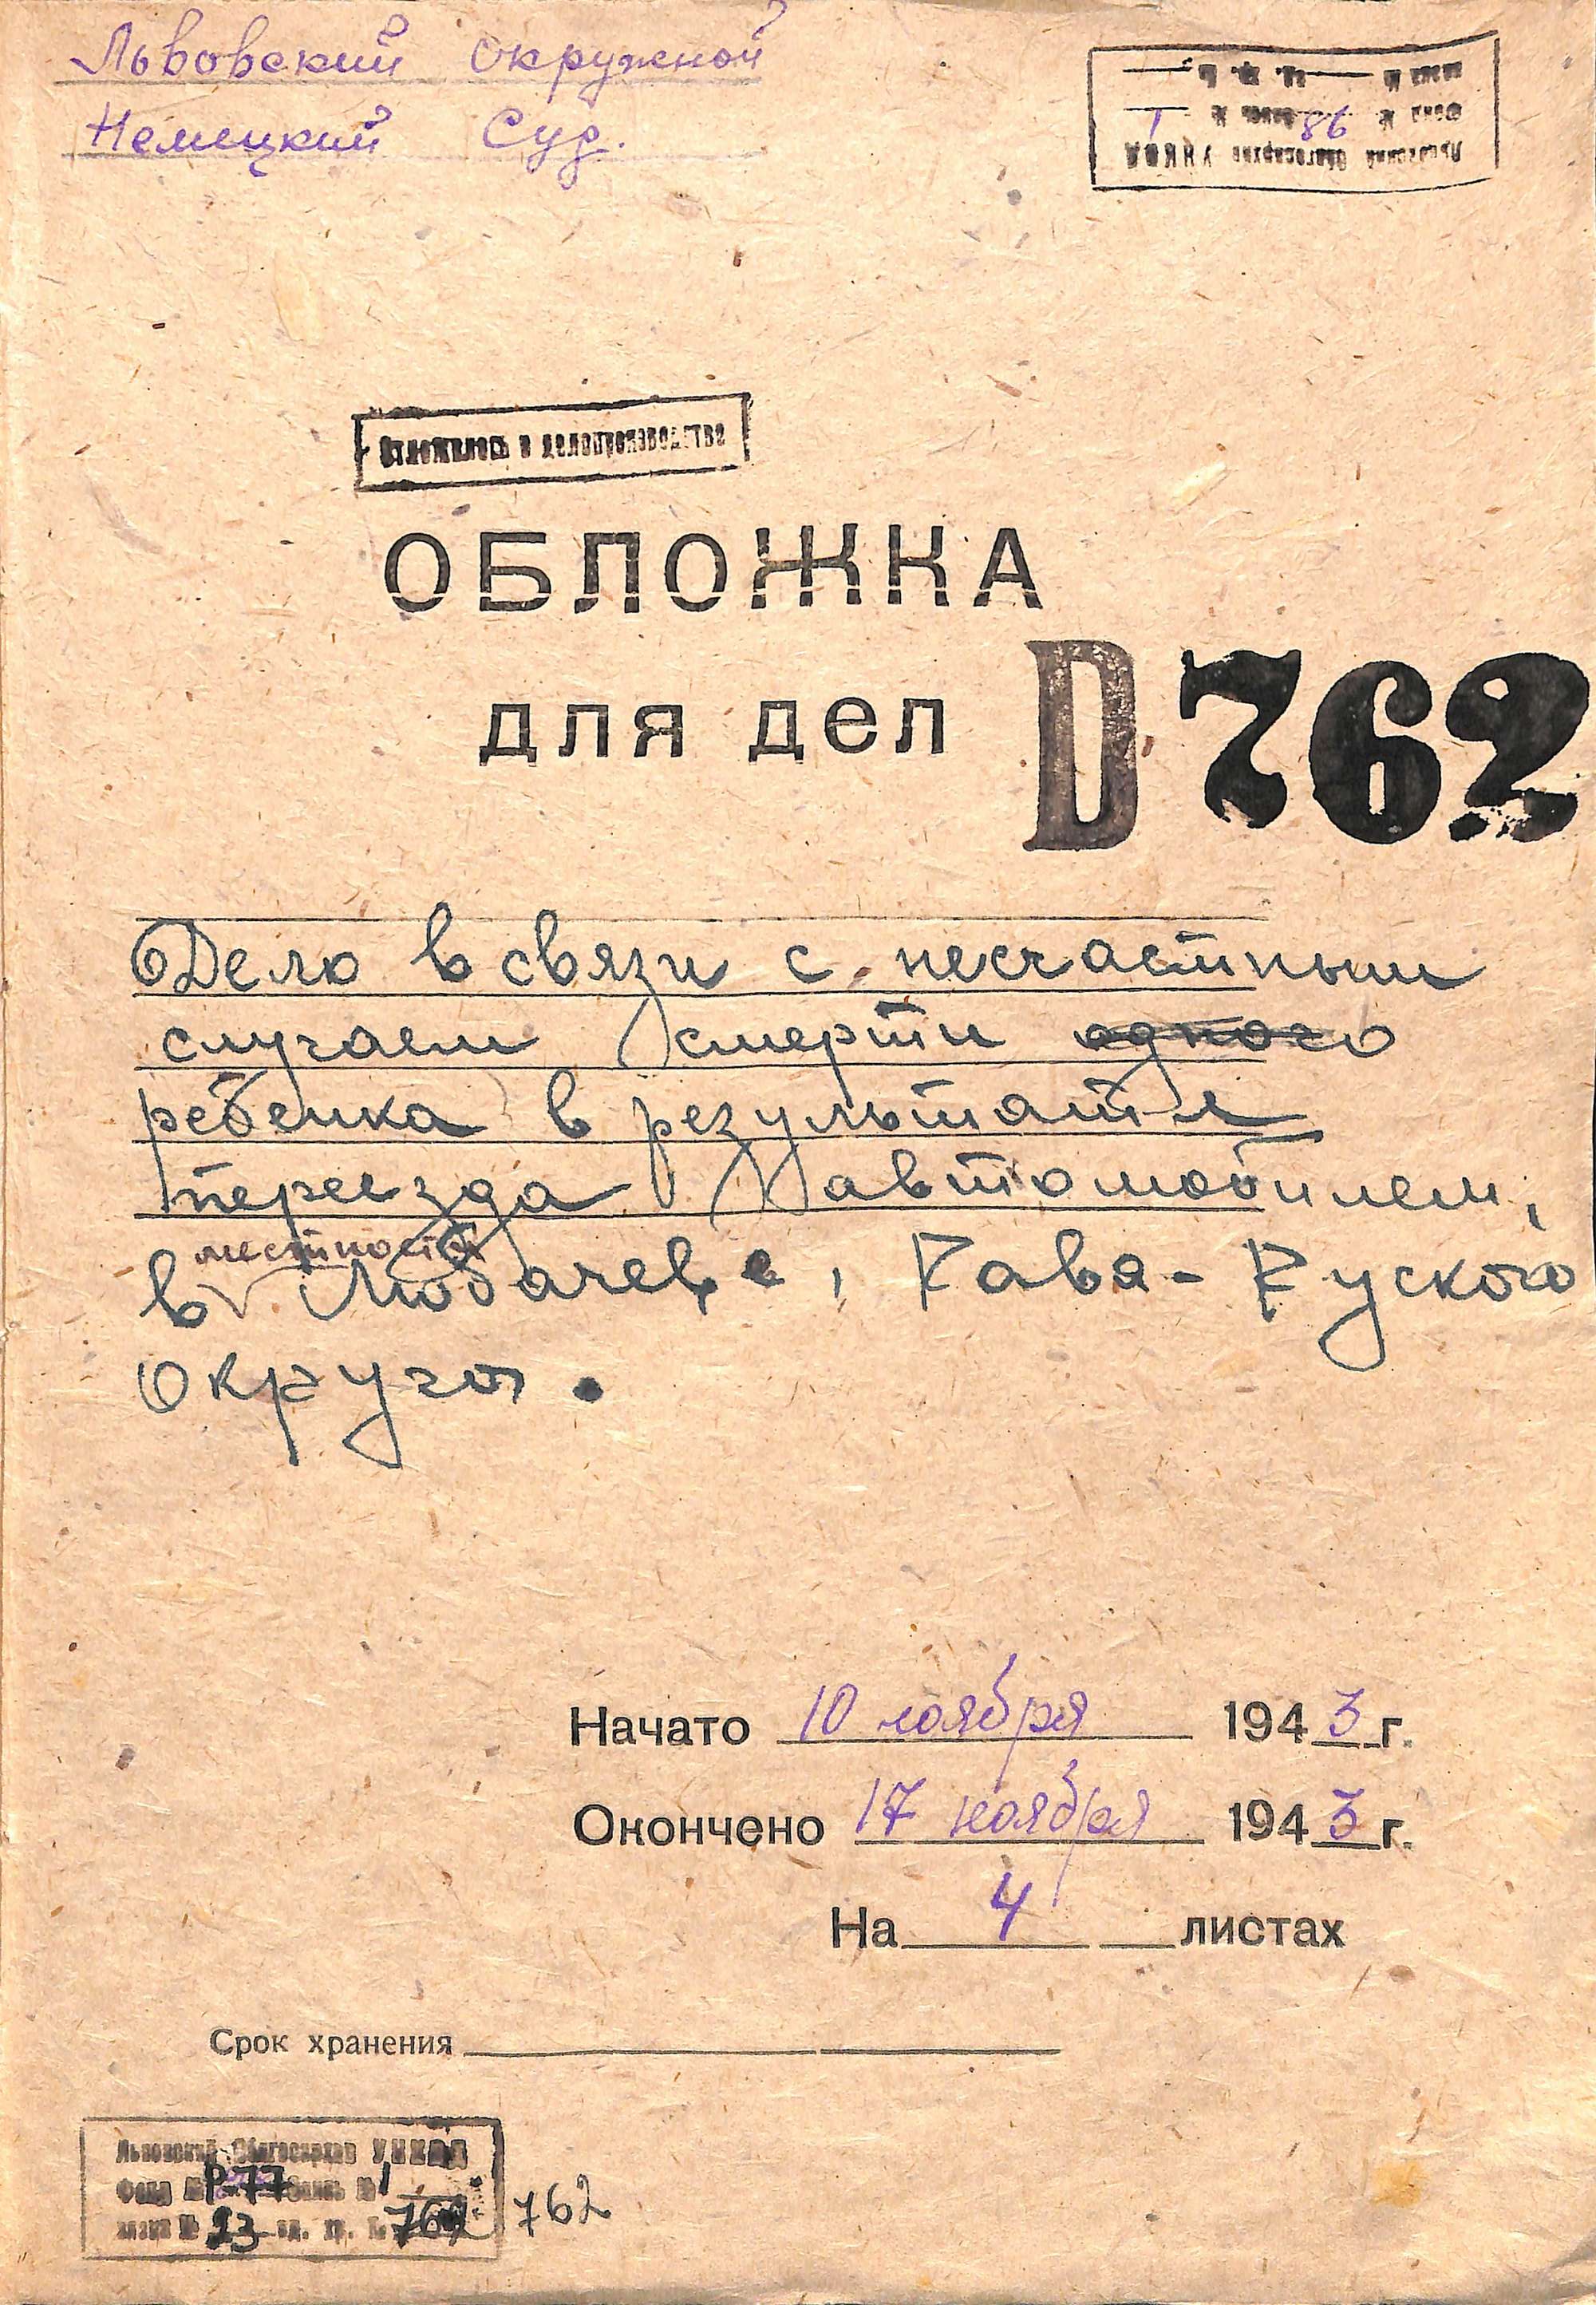 Львовский окружной
Немецкий Суд.
Львовский Облгосархив УНКВД
Фонд № 86 Опись № I
вязка № ед. хр. №
Отложилось в делопроизводстве
ОБЛОЖКА
для дел
D 762
Дело в связи с несчастным
случаем смерти одного
ребенка в результате
переезда автомобилем,
местности
в Любачеве, Рава-Руского
округа.
Начато 10 ноября 1943 г.
Окончено 17 ноября 1943 г.
На 4 листах
Срок хранения
Львовский Облгосархив УНКВД
Фонд № Р-77 Опись № 1
вязка № 23 ед. хр. № 762
762